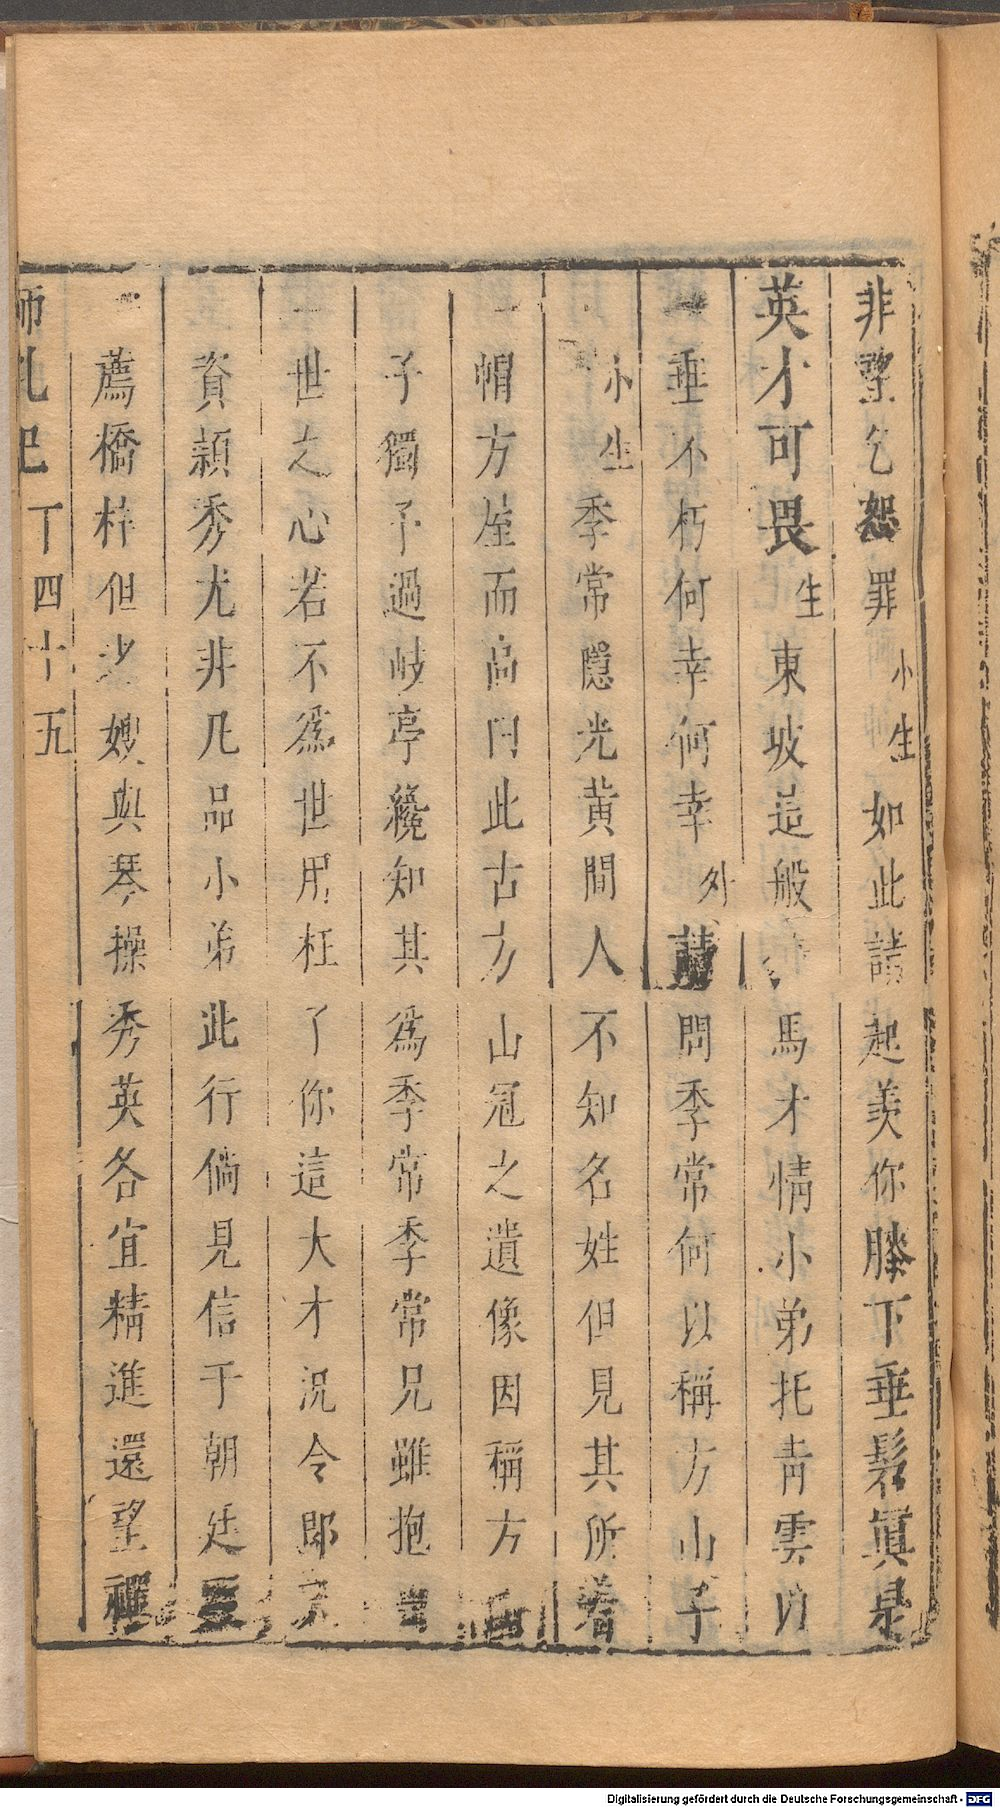 非孥乞恕罪小生如此請起羨你膝下垂髫眞是
英才可畏生東坡這般馬才情小弟托青雲以
垂不朽何幸何幸外請問季常何以稱方山子
小生季常隱光黃間人不知名姓但見其所着
帽方崖而高曰此古方山冠之遺像因稱方
子獨予過岐亭纔知其爲季常季常兄雖抱
世之心若不爲世用枉了你這大才況令郎
資穎秀尤非凡品小弟此行倘見信于朝廷
薦橋梓但老嫂與琴操秀英各宜精進還望禪
師乳記 下 四十五
Digitalisierung gefördert durch die Deutsche Forschungsgemeinschaft - DFG